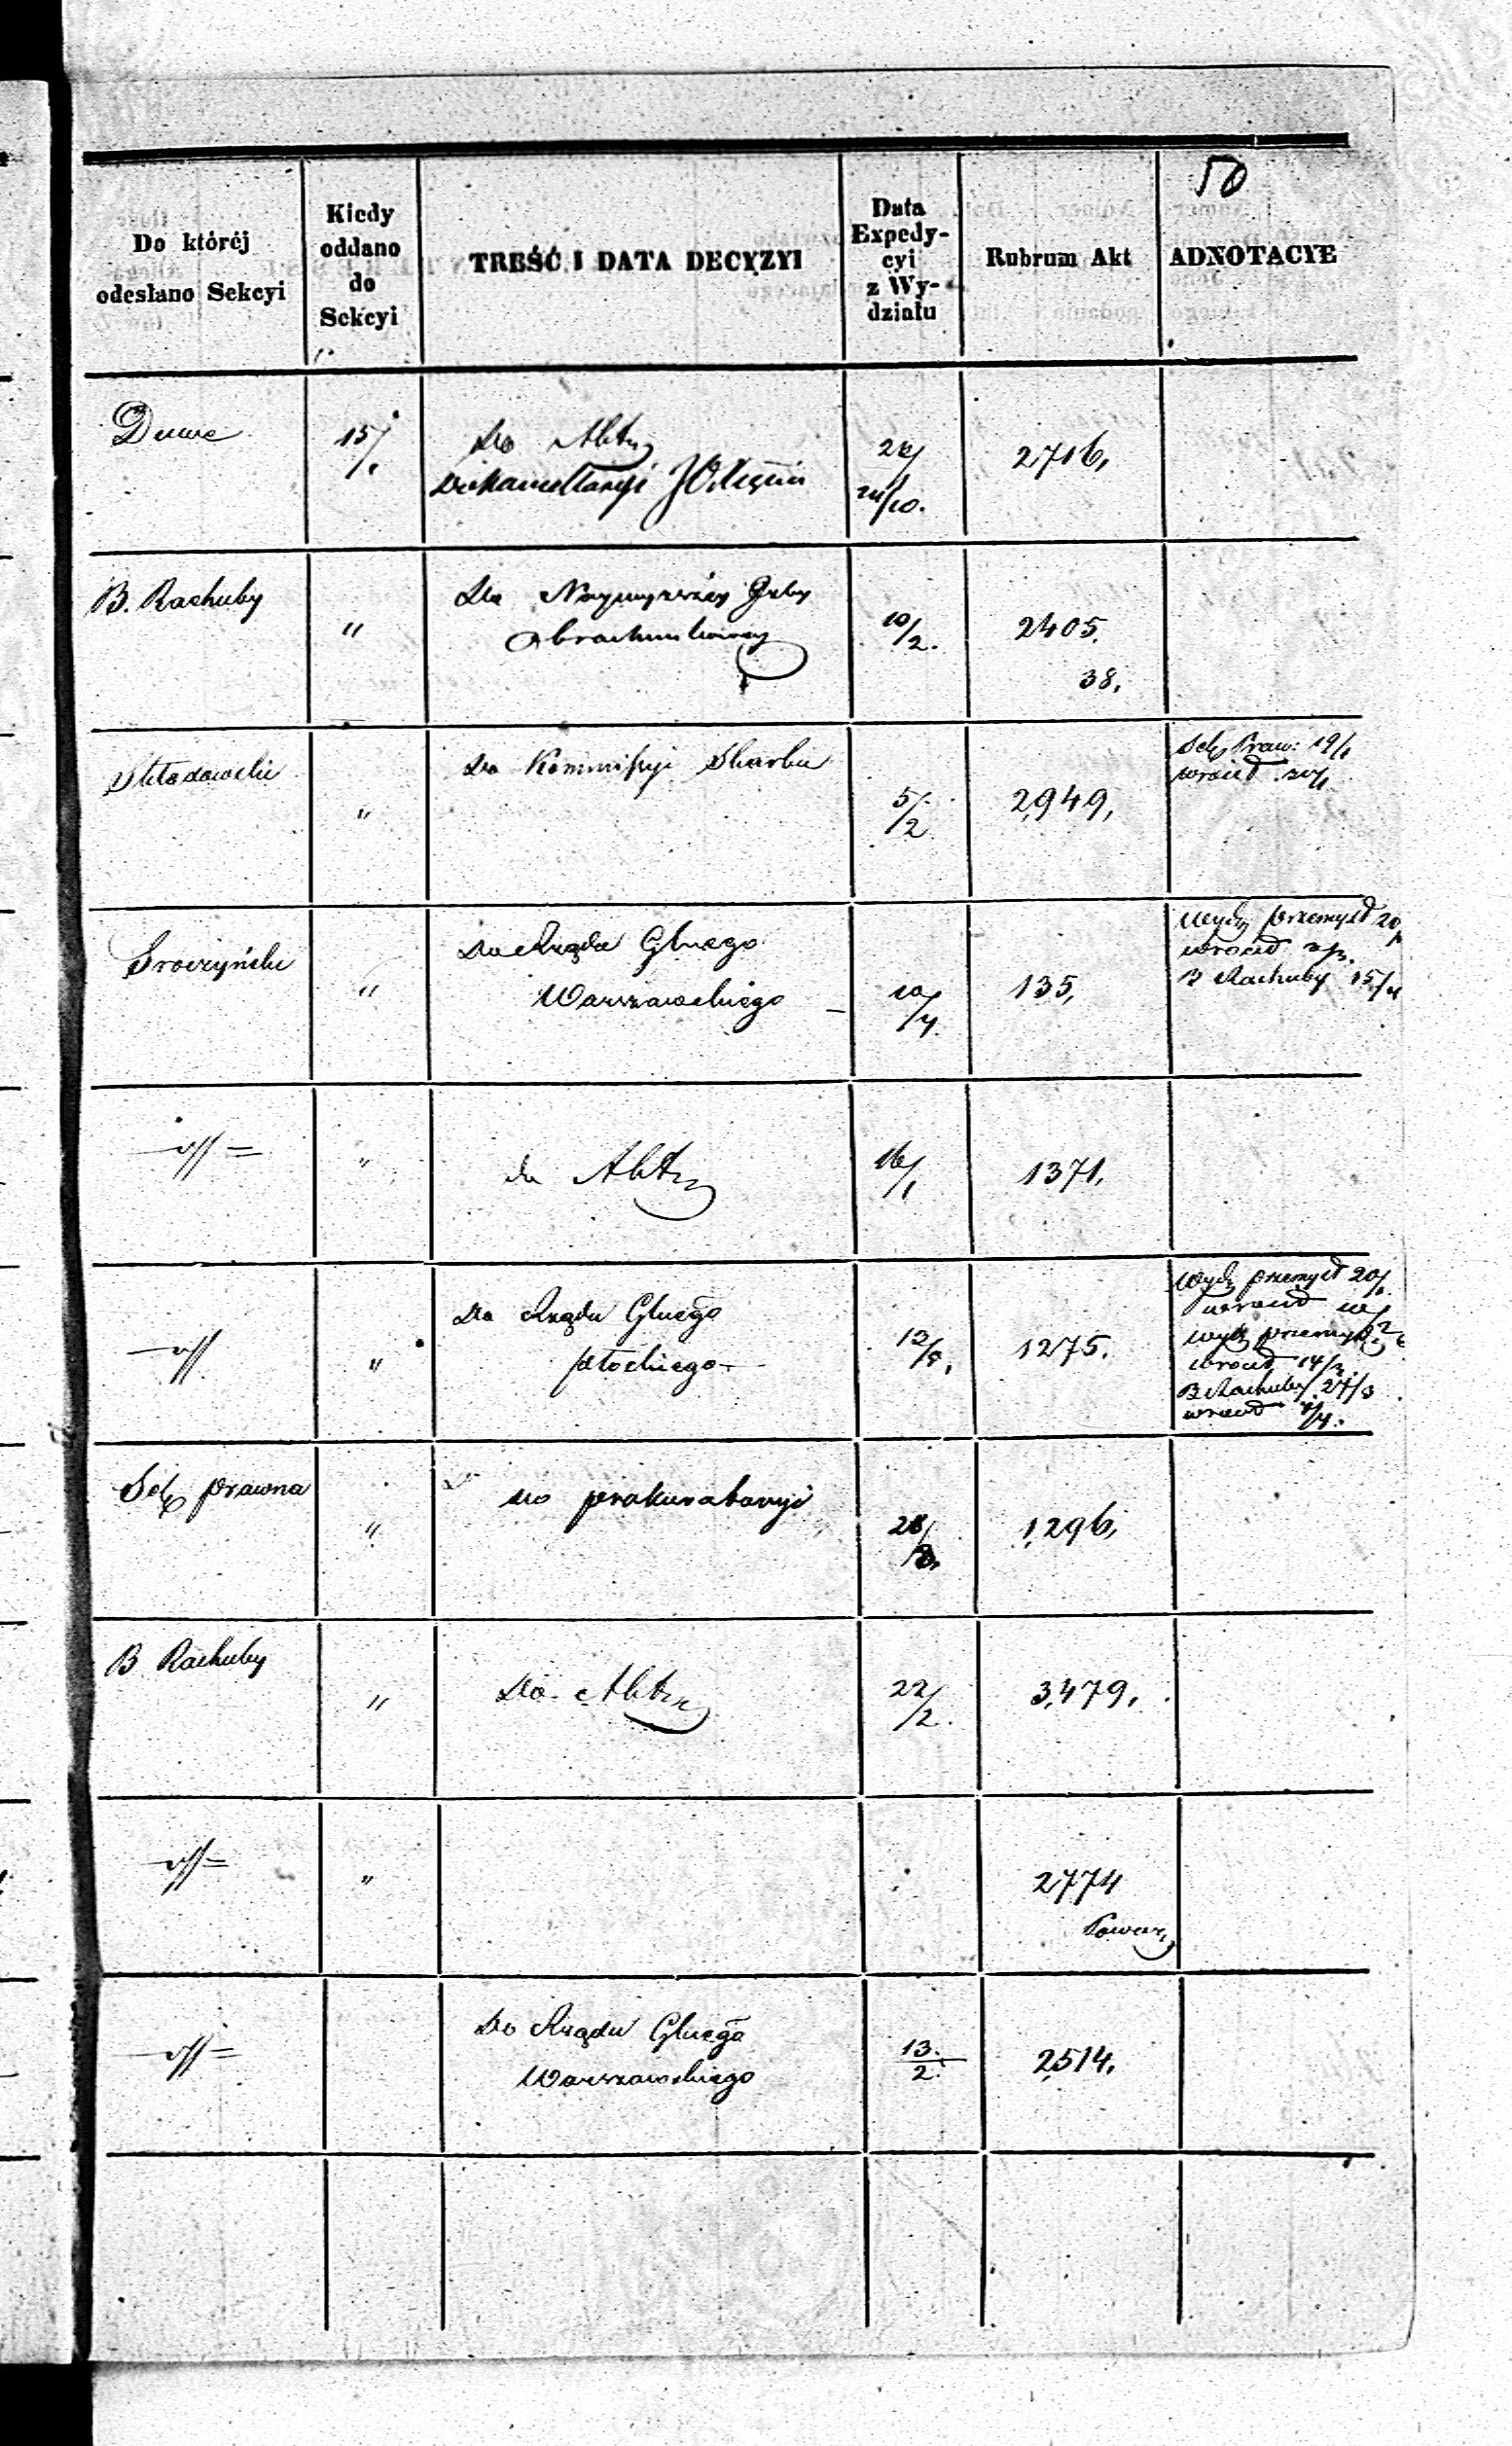 50
Do któréj
odesłano Sekcyi
Kiedy
oddano
do
Sekcyi
TREŚĆ I DATA DECYZYI
Data
Expedy-
cyi
z Wy-
działu
Rubrum Akt
ADNOTACYE
15/1
Do Akt
2716,
B. Rachuby
"
Do Naywyższéy Izby
Obrachunkowey
10/2.
2405.
38,
"
Do Kommissyi Skarbu
5/2
2,949,
Praw: 19/1
wrócił
Sroczyński
"
Do Rządu Glnego
Warszawskiego
10/4.
135,
Wydz przemysł 20
wrócił
B Rachuby 15/4
"
do Akt
16/1
1371,
"
Do Rządu Glnego
płockiego
1275.
Wydz przemysł 20/1
wrócił
wydz przemysł
wrócił 14/3
B Rachuby 27/3
wrócił
Sek prawna
"
Do prokuratoryi
28/
1,296,
B Rachuby
"
Do Akt
22/2.
3,479,
"
2774
Do Rządu Glnego
Warszawskiego
13/2
2,514,